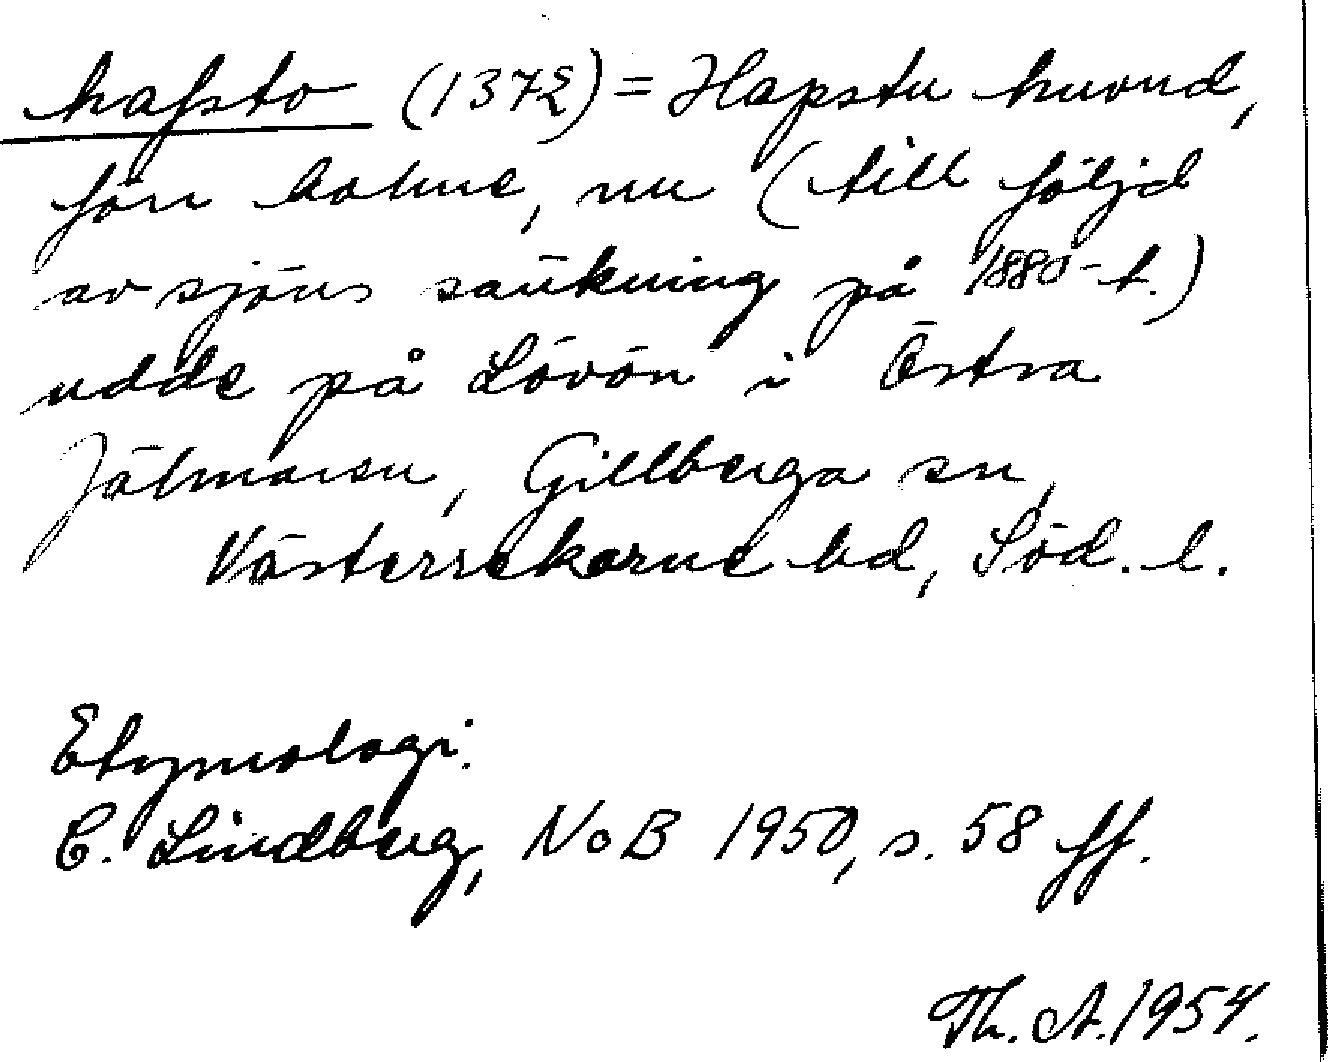 hafsto (1372) = Hapstu huvud,
förr holme, nu (till följd
av sjöns sänkning på 1880-t.)
udde på Lövön i Östra
Hjälmaren, Gillberga sn,
Västerrekarne hd, Söd. l.
Etymologi:
C. Lindberg, NoB 1950, s. 58 ff.
Th. A. 1954.